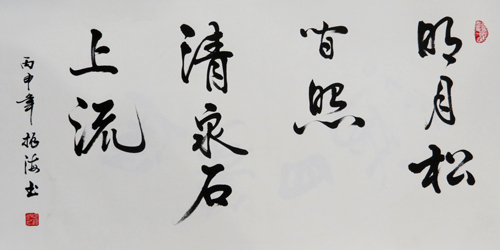 明月松
间照
清泉石
上流
丙申年振海书